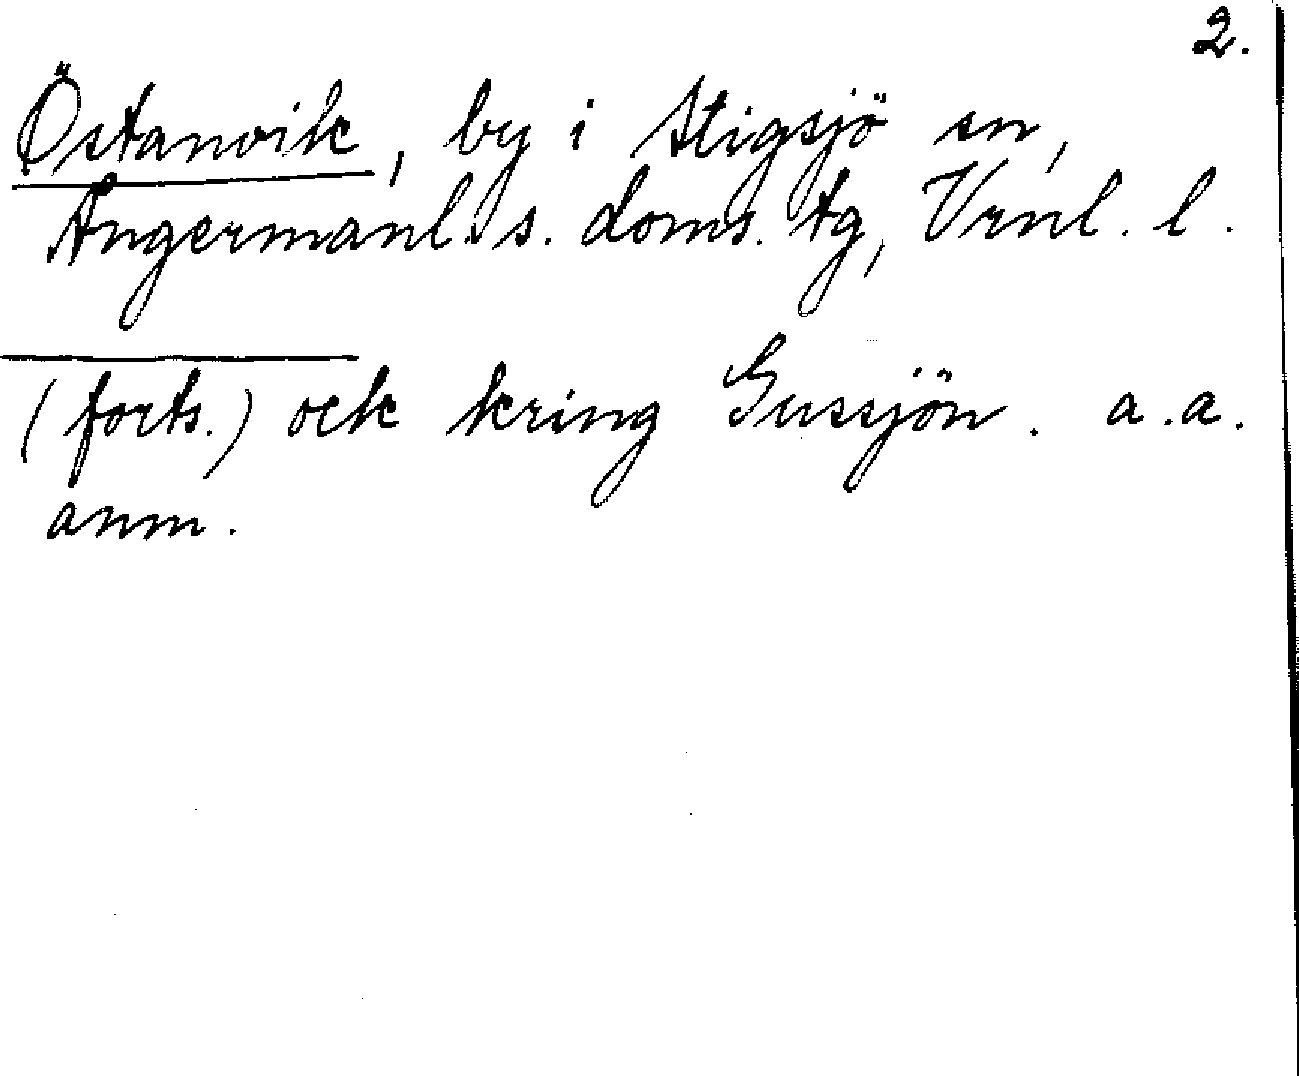 2.
Östanvik, by i Stigsjö sn,
Ångermanl. s. doms. tg, Vrnl. l.
(forts.) ock kring Gussjön. a.a.
anm.